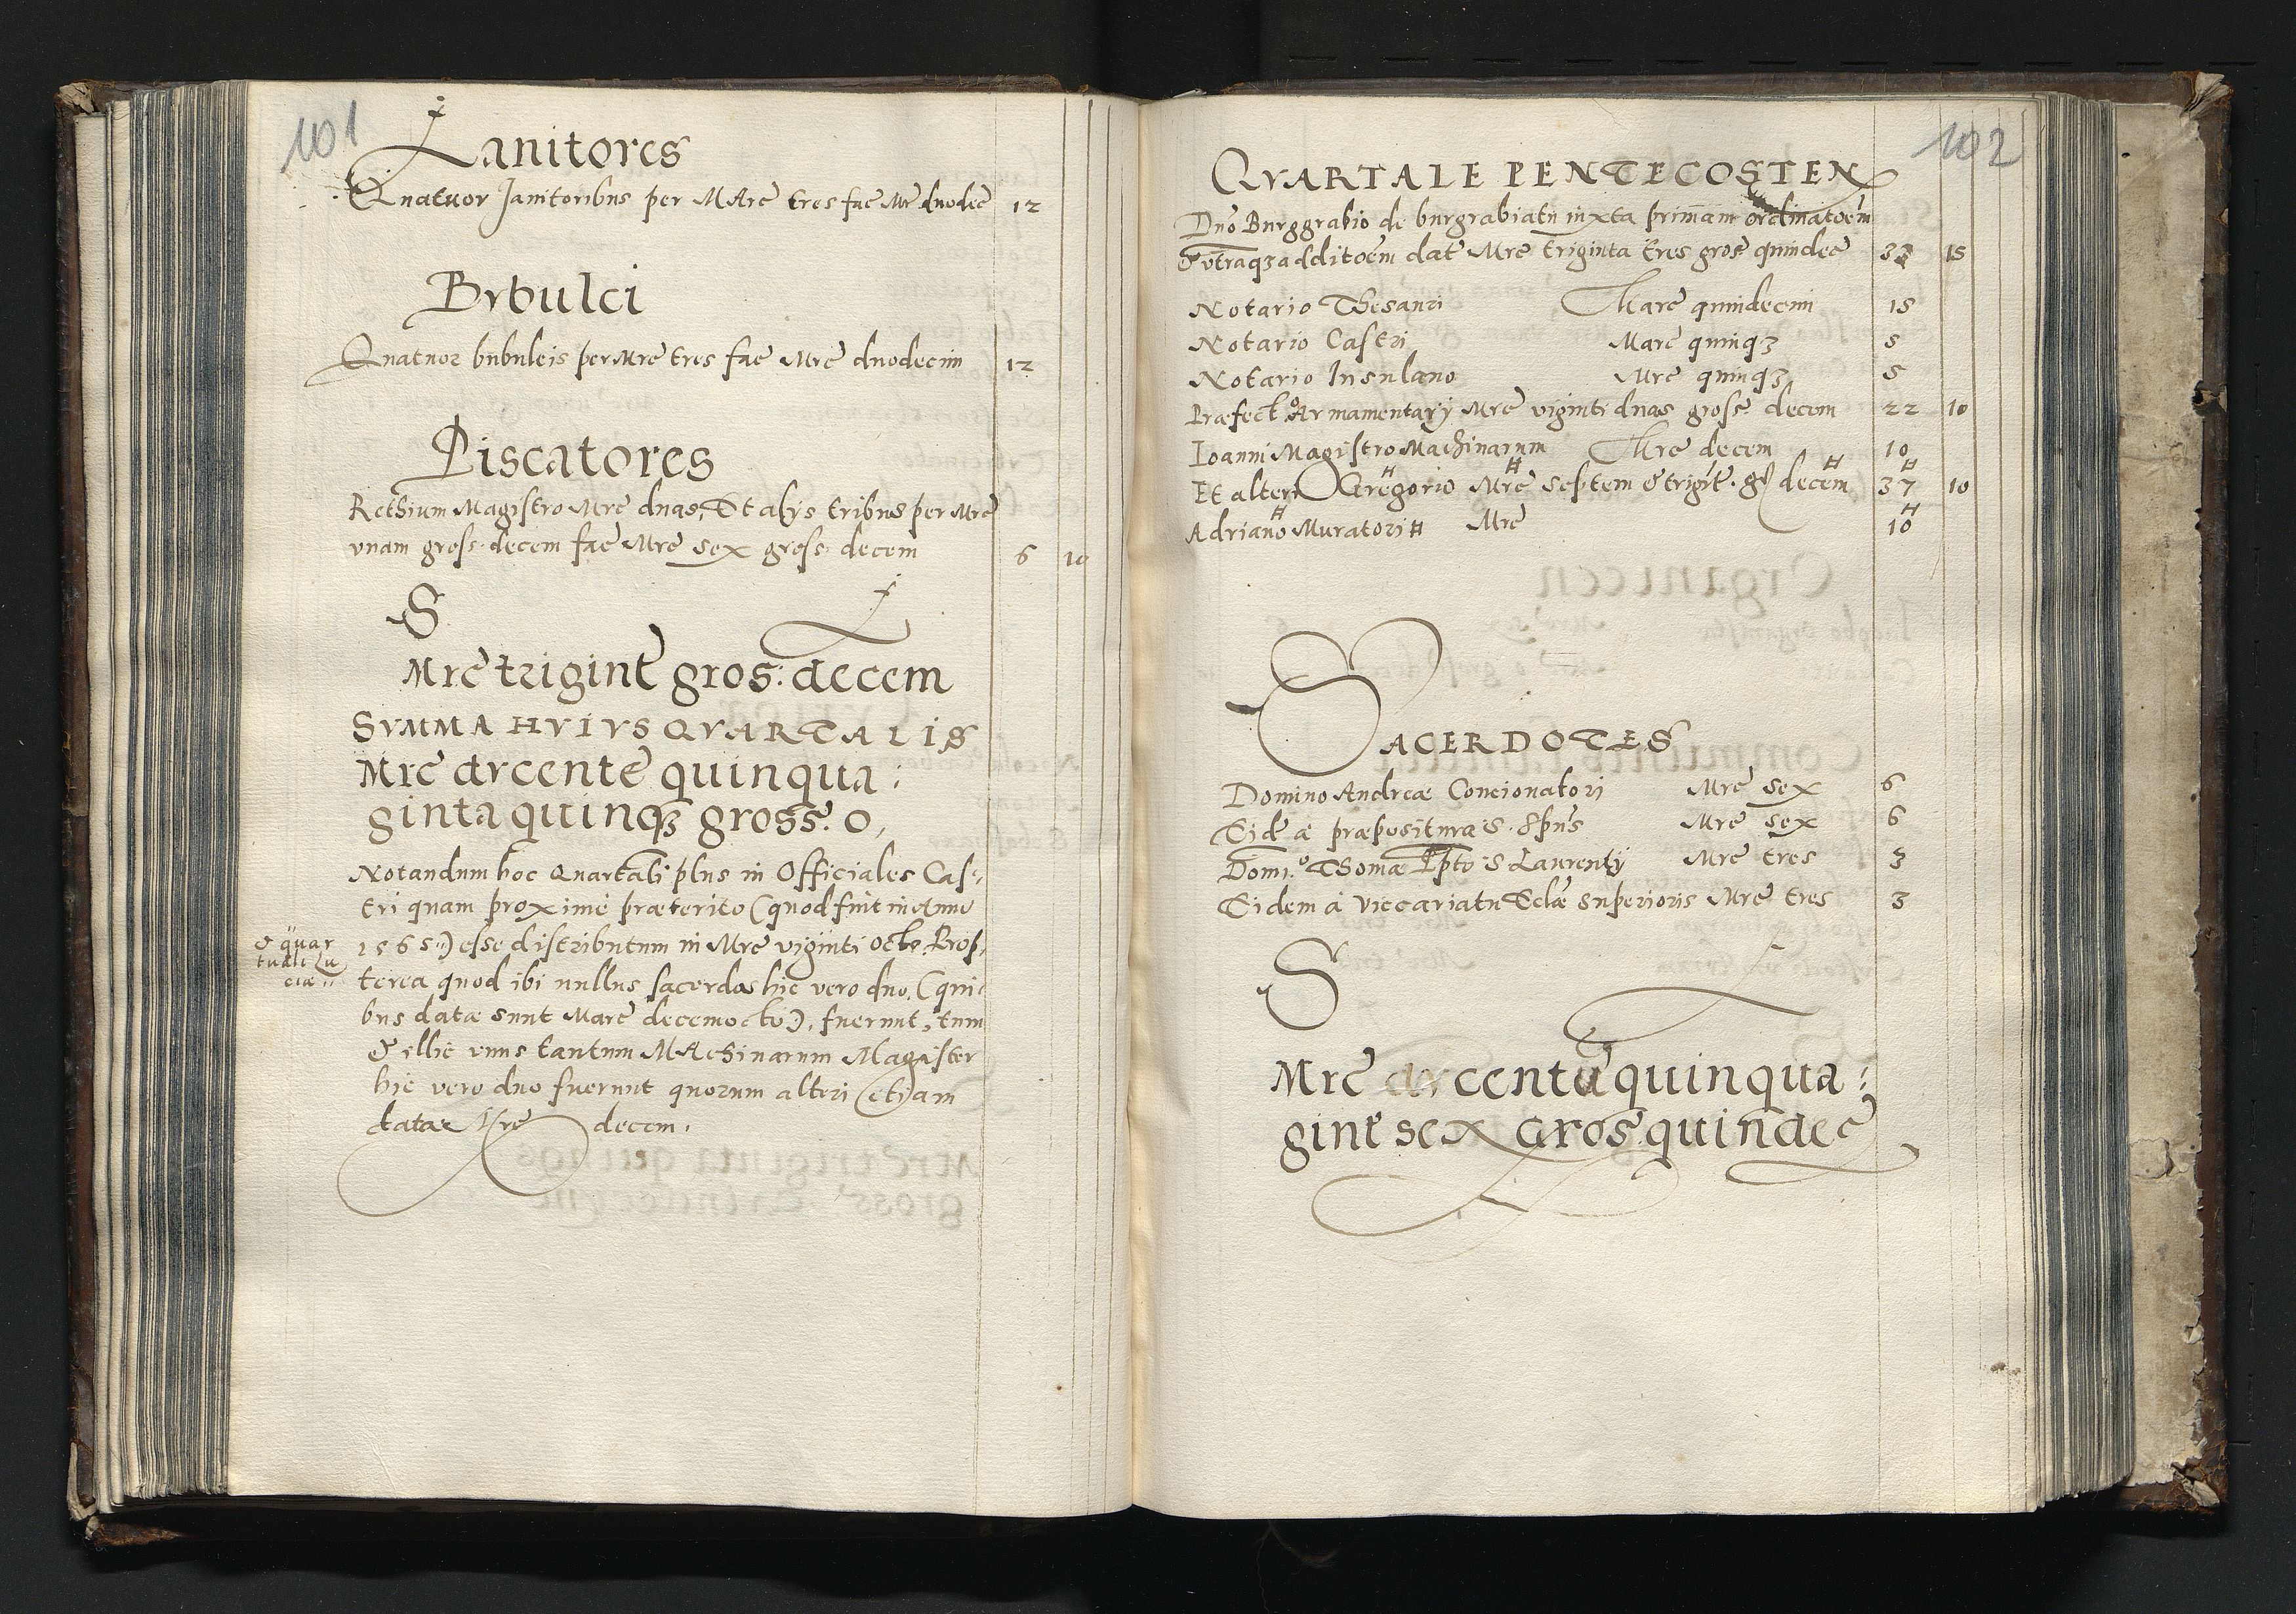 101
Ianitores
Quatuor Janitoribus per MArc̃ tres fac̃ Mrc̃ duodec̃ 12
Bvbulci
Quatuor bubulcis per Mrc̃ tres fac̃ Mrc̃ duodecim 12
Piscatores
Rethium Magistro Mrc̃ duas, Et alijs tribus per Mrc̃
vnam gross: decem fac̃ Mrc̃ sex gross: decem 6 10
S
Mrc̃ trigint̃ gros: decem
SVMMA HVIVS QVARTALIS
Mrc̃ dvcente quinqua:
ginta quinq3 gross: 0,
Notandum hoc Quartali plus in Officiales Cas:
tri quam proxime præterito (quod fuit in Anno
& quar
tuali Lu
ciæ
1565) esse distributum in Mrc̃ viginti octo. Prop,
terea quod ibi nullus sacerdos hic vero duo, (qui:
bus datæ sunt Marc̃ decemocto), fuerunt, tum
& illic vnus tantum MAchinarum Magister
hic vero duo fuerunt quorum alteri (eti)am
datæ Mrc̃ decem.
102
QVARTALE PENTECOSTEN
Dño Burggrabio de burgrabiatu iuxta primam ordinatoẽm
& vtraq3 additoẽm dat̃ Mrc̃ triginta tres gros̃ quindec̃ 33 15
Notario Thesauri Marc̃ quindecim 15
Notario Castri Marc̃ quinq3 5
Notario Insulano Mrc̃ quinq3 5
Præfectº Armamentarij Mrc̃ viginti duas gross: decem 22 10
Ioanni Magistro Machinarum Mrc̃ decem 10
Et alteri Gregorio Mrc̃ septem & trigint̃. gß decem 37 10
Adriano Muratori Mrc̃ 10
SACERDOTES
Domino Andreæ Concionatori Mrc̃ sex 6
Eidẽ a præpositura S. Spũs Mrc̃ sex 6
Domi.º Thomæ Pp̃to S Laurentij Mrc̃ tres 3
Eidem à Viccariatu Eclæ superioris Mrc̃ tres 3
S
Mrc̃ centũ quinqua:
gint̃ sex gros̃ quindec̃